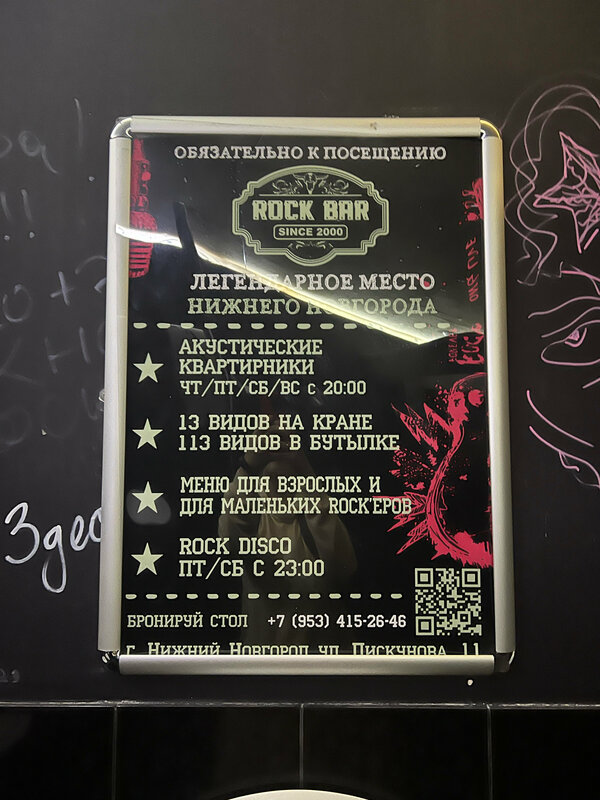 ОБЯЗАТЕЛЬНО К ПОСЕЩЕНИЮ
ROCK BAR
SINCE 2000
ЛЕГЕНДАРНОЕ МЕСТО
НИЖНЕГО НОВГОРОДА
АКУСТИЧЕСКИЕ
КВАРТИРНИКИ
ЧТ/ПТ/СБ/ВС с 20:00
13 ВИДОВ НА КРАНЕ
113 ВИДОВ В БУТЫЛКЕ
МЕНЮ ДЛЯ ВЗРОСЛЫХ И
ДЛЯ МАЛЕНЬКИХ ROCK'ЕРОВ
ROCK DISCO
ПТ/СБ С 23:00
БРОНИРУЙ СТОЛ +7 (953) 415-26-46
г. Нижний Новгород ул. Пискунова, 11